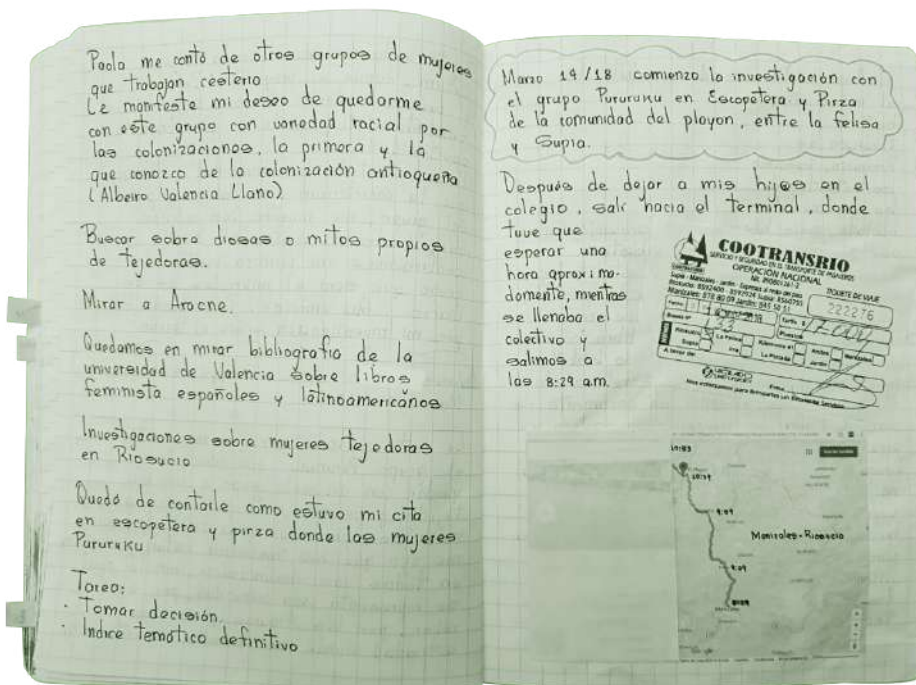 Paola me contó de otros grupos de mujeres
que trabajan cestería
Le manifesté mi deseo de quedarme
con este grupo con variedad racial por
las colonizaciones, la primera y la
que conozco de la colonización antioqueña
(Albeiro Valencia Llano)
Buscar sobre diosas o mitos propios
de tejedoras.
Mirar a Aracne.
Quedamos en mirar bibliografía de la
universidad de Valencia sobre libros
feminista españoles y latinoamericanos
Investigaciones sobre mujeres tejedoras
en Riosucio
Quedo de contarle como estuvo mi cita
en escopetera y pirza donde las mujeres
Pururuku
Tarea:
· Tomar decisión.
· Indice temático definitivo
Marzo 14/18 comienzo la investigación con
el grupo Pururuku en Escopetera y Pirza
de la comunidad del playon, entre la felisa
y Supia.
Después de dejar a mis hijos en el
colegio, salí hacia el terminal, donde
tuve que
esperar una
hora aproxima-
damente, mientras
se llenaba el
colectivo y
salimos a
las 8:29 a.m.
COOTRANSRIO
SERVICIO Y SEGURIDAD EN EL TRANSPORTE DE PASAJEROS
OPERACIÓN NACIONAL
TIQUETE DE VIAJE
222276
Manizales
La Felisa
Supia
Irra
La Pintada
Jardín
A favor de:
10:39
9:09
Manizales - Riosucio